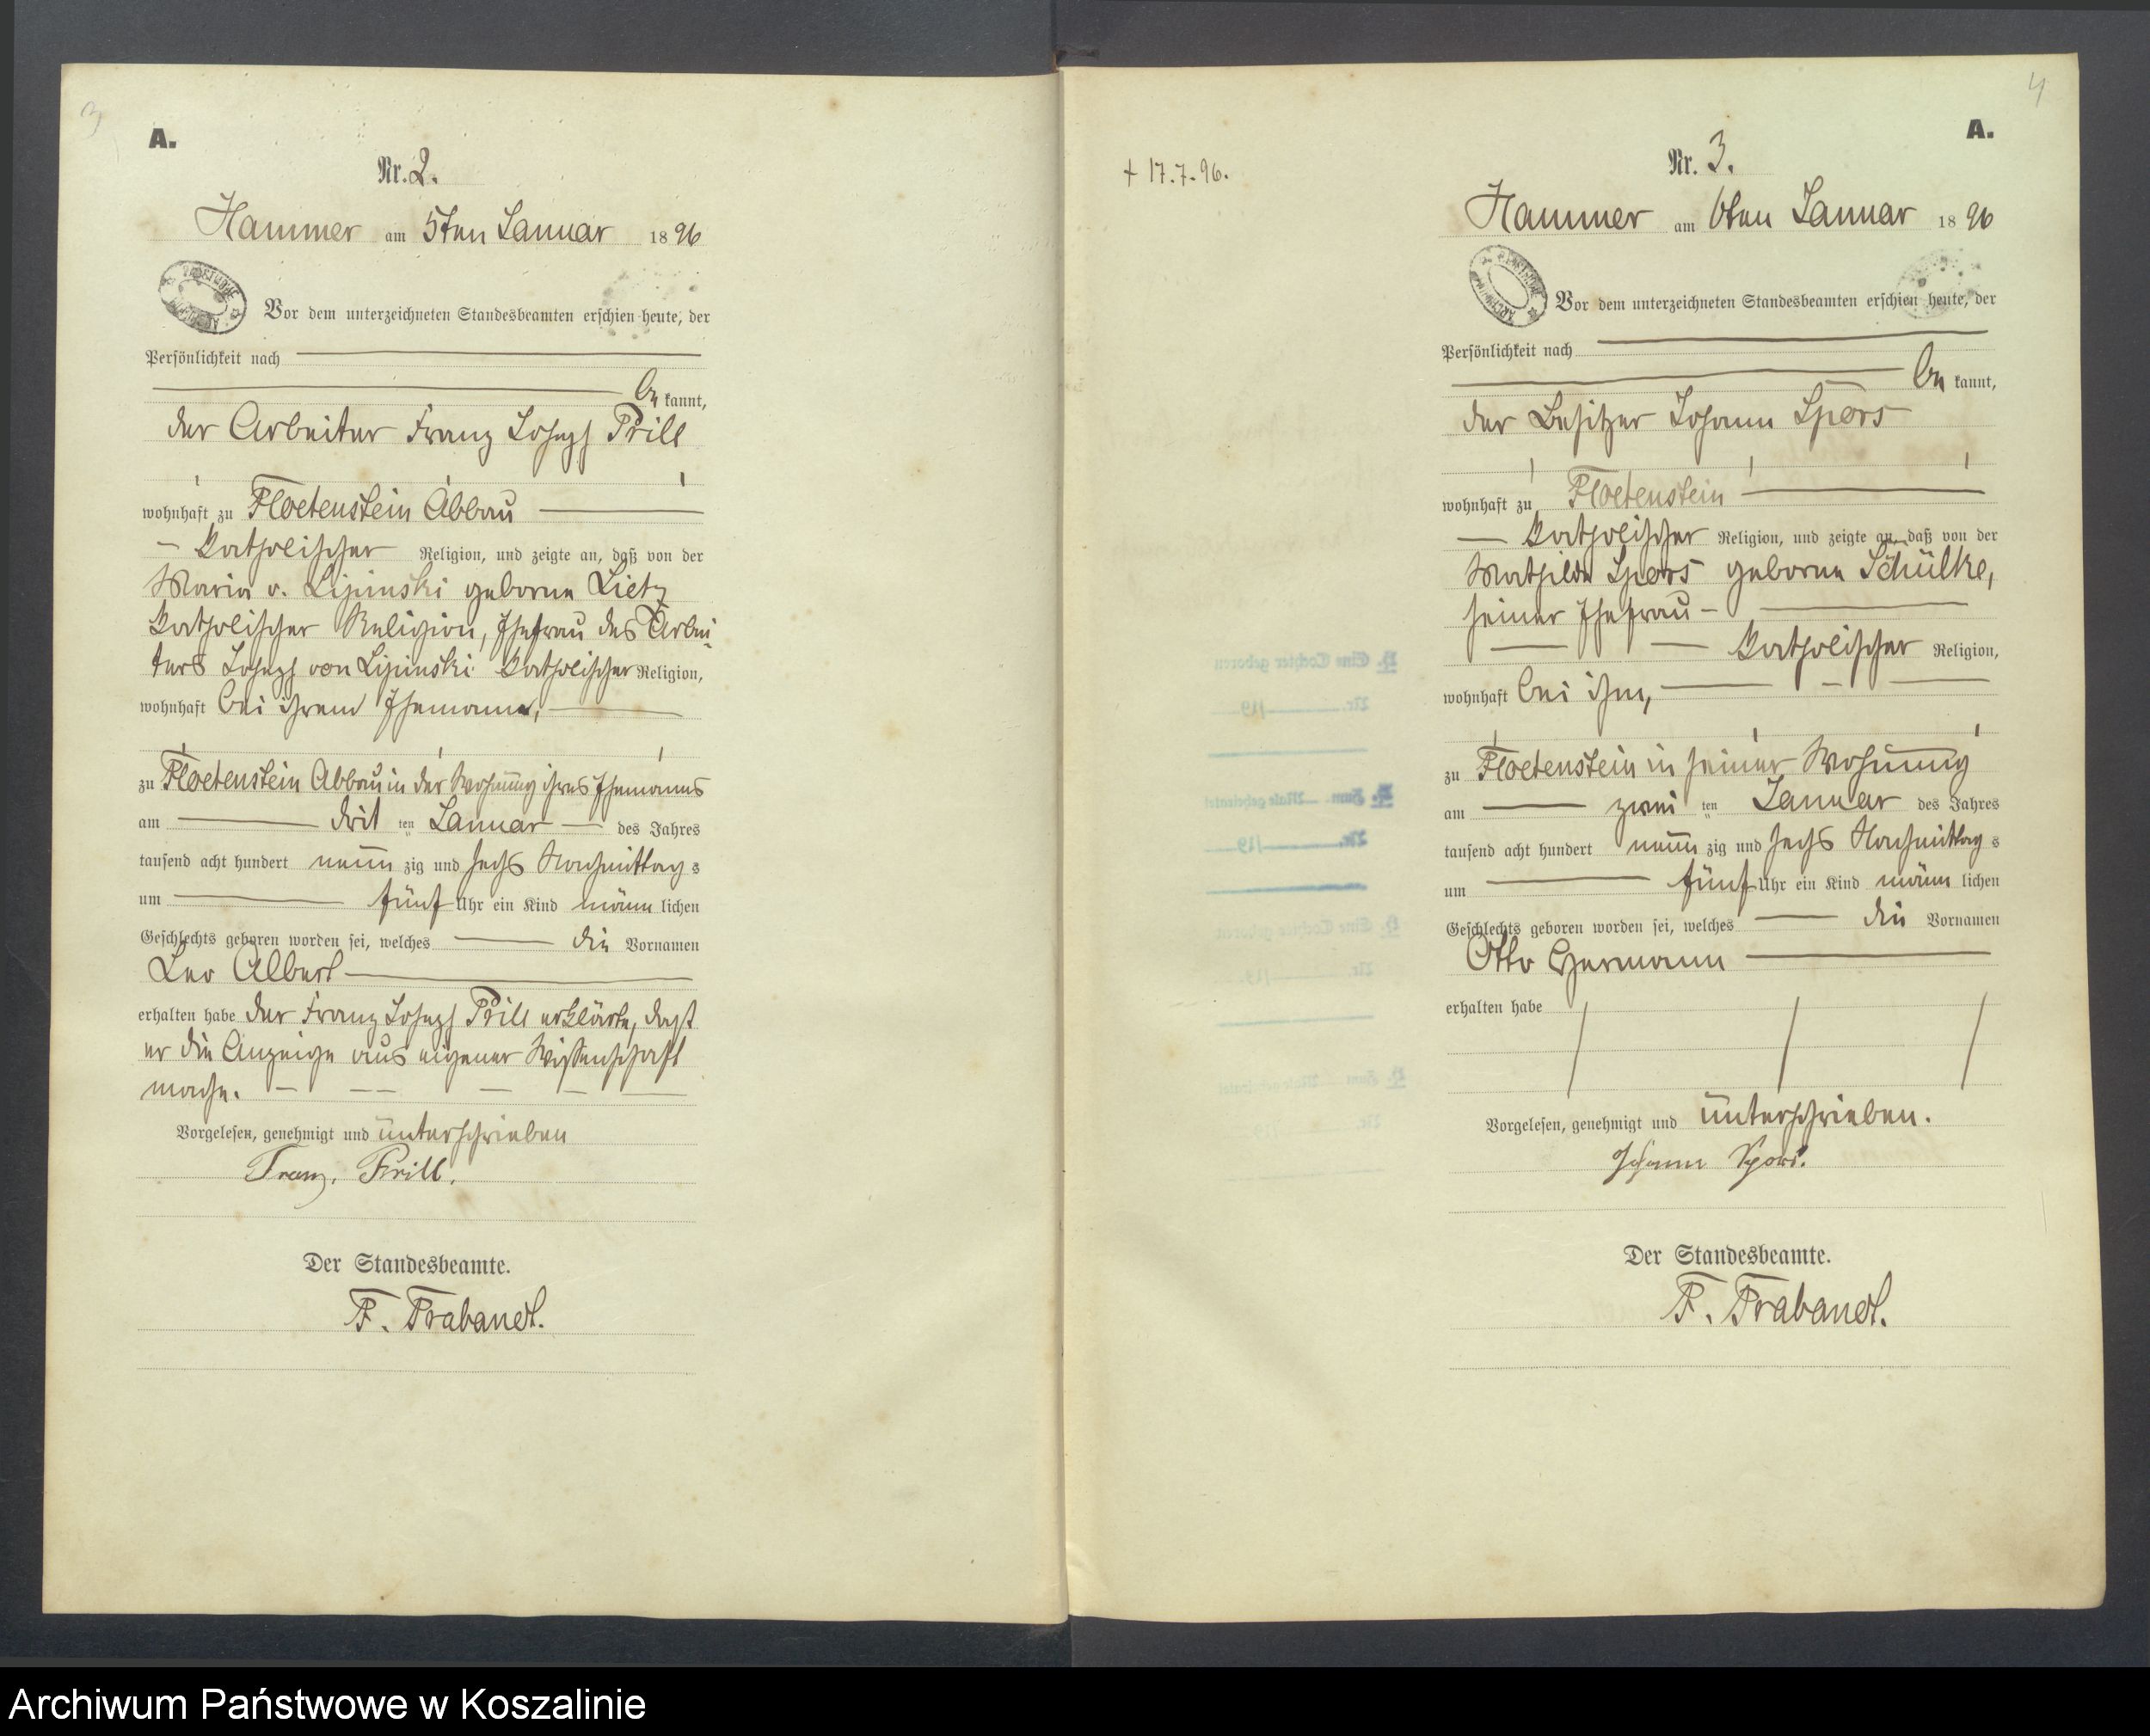 3
A.
Nr. 2.
Hammer am 5ten Januar 1896
Vor dem unterzeichneten Standesbeamten erschien heute, der
Persönlichkeit nach
be kannt,
der Arbeiter Franz Joseph Prill
wohnhaft zu Floetenstein Abbau
katholischer Religion, und zeigte an, daß von der
Maria v. Lipinski geborne Lietz
katholischer Religion, Ehefrau des Arbei-
ters Joseph von Lipinski katholischer Religion,
wohnhaft bei ihrem Ehemanne,
zu Floetenstein Abbau in der Wohnung ihres Ehemanns
am drit ten Januar des Jahres
tausend acht hundert neun zig und sechs Nachmittag s
um fünf Uhr ein Kind männ lichen
Geschlechts geboren worden sei, welches die Vornamen
Leo Albert
erhalten habe der Franz Joseph Prill erklärte, daß
er die Anzeige aus eigener Wissenschaft
mache.
Vorgelesen, genehmigt und unterschrieben
Franz. Prill.
Der Standesbeamte.
F. Trabandt.
4
A.
+ 17.7.96.
Nr. 3.
Hammer am 6ten Januar 1896
Vor dem unterzeichneten Standesbeamten erschien heute, der
Persönlichkeit nach
be kannt,
der Besitzer Johann Spors
wohnhaft zu Floetenstein
katholischer Religion, und zeigte an, daß von der
Mathilde Spors geborne Schülke,
seiner Ehefrau
katholischer Religion,
wohnhaft bei ihm,
zu Floetenstein in seiner Wohnung
am zwei ten Januar des Jahres
tausend acht hundert neun zig und sechs Nachmittag s
um fünf Uhr ein Kind männ lichen
Geschlechts geboren worden sei, welches die Vornamen
Otto Hermann
erhalten habe
Vorgelesen, genehmigt und unterschrieben.
Johann Spors.
Der Standesbeamte.
F. Trabandt.
Archiwum Państwowe w Koszalinie